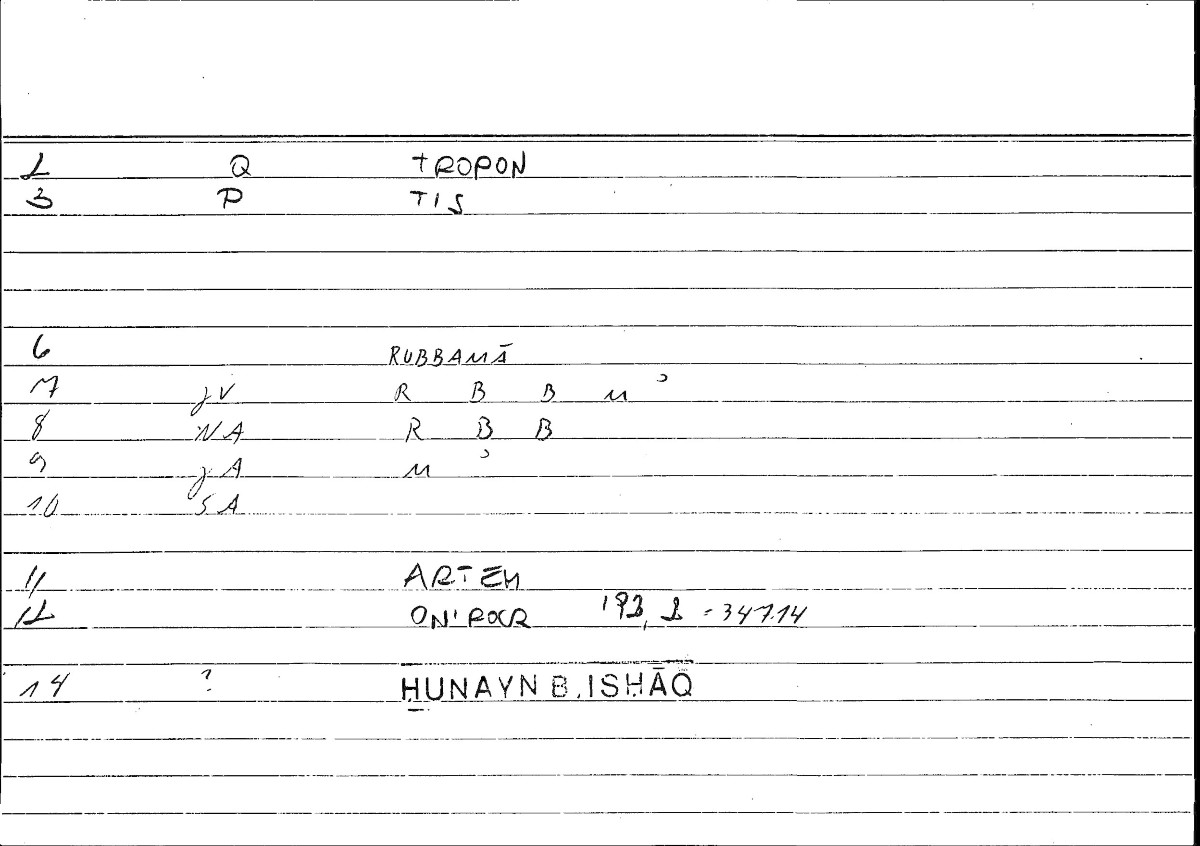 2 Q TROPON
3 P TIS
6 RUBBAMĀ
7 JV R B B M ʾ
8 NA R B B
9 JA M ʾ
10 SA
11 ARTEM
12 ONIROCR 193, 2 = 347.14
14 ? ḤUNAYN B. ISḤĀQ